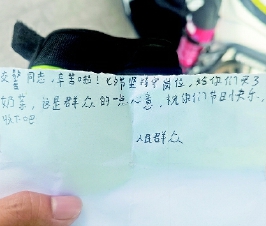 交警同志,辛苦啦!飞浠坚守岗位,给你们买了
奶茶,这是群众的一点心意,祝你们节日快乐。
收下吧
人民群众